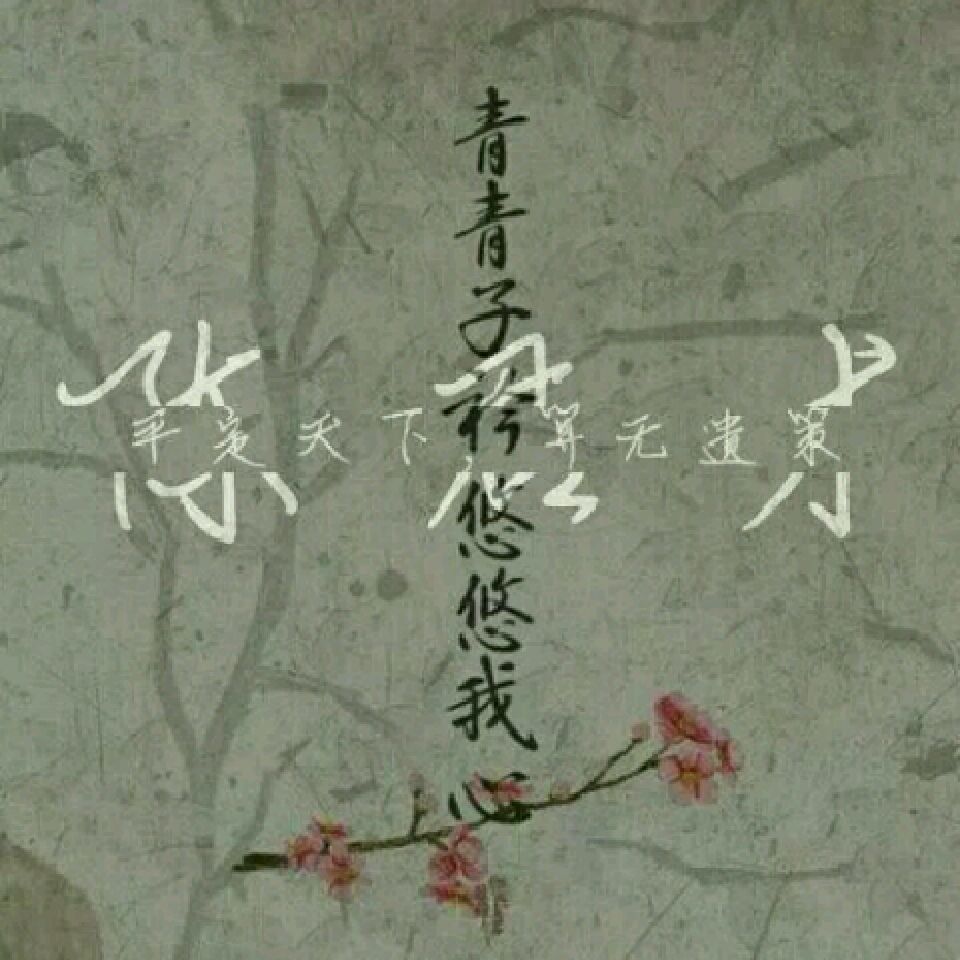 青青子衿悠悠我心
平定天下 算无遗策